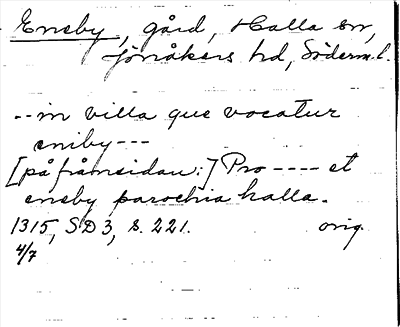 Eneby, gård, Halla sn,
Jönåkers hd, Söderm.l.
-- in villa que vocatur
eniby ---
[på frånsidan:] Pro ---- et
eneby parochia halla.
1315, SD 3, s. 221. orig.
4/7